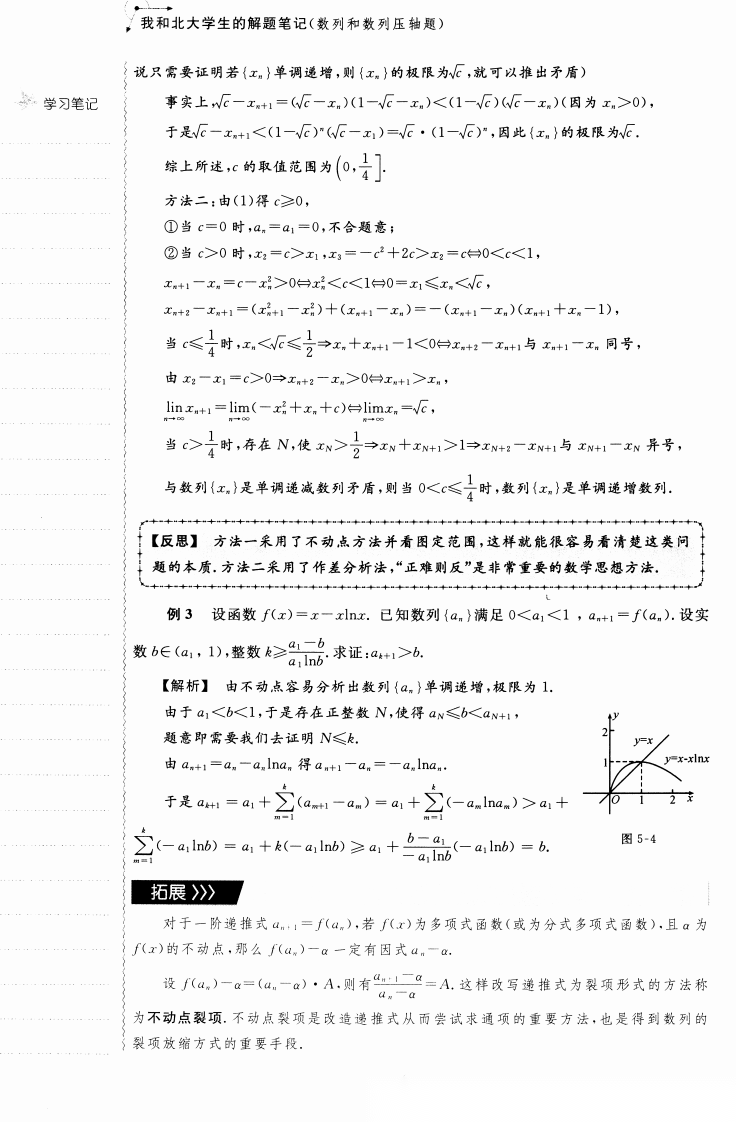 我和北大学生的解题笔记(数列和数列压轴题)
学习笔记
说只需要证明若{xₙ}单调递增,则{xₙ}的极限为√c,就可以推出矛盾)
事实上,√c－xₙ₊₁＝(√c－xₙ)(1－√c－xₙ)＜(1－√c)(√c－xₙ)(因为 xₙ＞0),
于是√c－xₙ₊₁＜(1－√c)ⁿ(√c－x₁)＝√c・(1－√c)ⁿ,因此{xₙ}的极限为√c.
综上所述,c 的取值范围为(0,1/4].
方法二:由(1)得 c≥0,
①当 c＝0 时,aₙ＝a₁＝0,不合题意;
②当 c＞0 时,x₂＝c＞x₁,x₃＝－c²＋2c＞x₂＝c⇔0＜c＜1,
xₙ₊₁－xₙ＝c－xₙ²＞0⇔xₙ²＜c＜1⇔0＝x₁≤xₙ＜√c,
xₙ₊₂－xₙ₊₁＝(xₙ₊₁²－xₙ²)＋(xₙ₊₁－xₙ)＝－(xₙ₊₁－xₙ)(xₙ₊₁＋xₙ－1),
当 c≤1/4时,xₙ＜√c≤1/2⇒xₙ＋xₙ₊₁－1＜0⇔xₙ₊₂－xₙ₊₁与 xₙ₊₁－xₙ 同号,
由 x₂－x₁＝c＞0⇒xₙ₊₂－xₙ＞0⇔xₙ₊₁＞xₙ,
lin(n→∞) xₙ₊₁＝lim(n→∞)(－xₙ²＋xₙ＋c)⇔lim(n→∞)xₙ＝√c,
当 c＞1/4时,存在 N,使 x_N＞1/2⇒x_N＋x_{N+1}＞1⇒x_{N+2}－x_{N+1}与 x_{N+1}－x_N 异号,
与数列{xₙ}是单调递减数列矛盾,则当 0＜c≤1/4时,数列{xₙ}是单调递增数列.
【反思】 方法一采用了不动点方法并看图定范围,这样就能很容易看清楚这类问
题的本质.方法二采用了作差分析法,“正难则反”是非常重要的数学思想方法.
例 3 设函数 f(x)＝x－xlnx. 已知数列{aₙ}满足 0＜a₁＜1 , aₙ₊₁＝f(aₙ). 设实
数 b∈(a₁ , 1),整数 k≥(a₁－b)/(a₁lnb).求证:a_{k+1}＞b.
【解析】 由不动点容易分析出数列{aₙ}单调递增,极限为 1.
由于 a₁＜b＜1,于是存在正整数 N,使得 a_N≤b＜a_{N+1},
题意即需要我们去证明 N≤k.
由 aₙ₊₁＝aₙ－aₙlnaₙ 得 aₙ₊₁－aₙ＝－aₙlnaₙ.
于是 a_{k+1}＝a₁＋∑_{m=1}^{k}(a_{m+1}－a_m)＝a₁＋∑_{m=1}^{k}(－a_m lna_m)＞a₁＋
∑_{m=1}^{k}(－a₁lnb)＝a₁＋k(－a₁lnb)≥a₁＋(b－a₁)/(－a₁lnb)(－a₁lnb)＝b.
y
2
y=x
1
y=x-xlnx
O 1 2 x
图 5-4
拓展 》》
对于一阶递推式 aₙ₊₁＝f(aₙ),若 f(x)为多项式函数(或为分式多项式函数),且 α 为
f(x)的不动点,那么 f(aₙ)－α 一定有因式 aₙ－α.
设 f(aₙ)－α＝(aₙ－α)・A,则有(aₙ₊₁－α)/(aₙ－α)＝A. 这样改写递推式为裂项形式的方法称
为不动点裂项. 不动点裂项是改造递推式从而尝试求通项的重要方法,也是得到数列的
裂项放缩方式的重要手段.